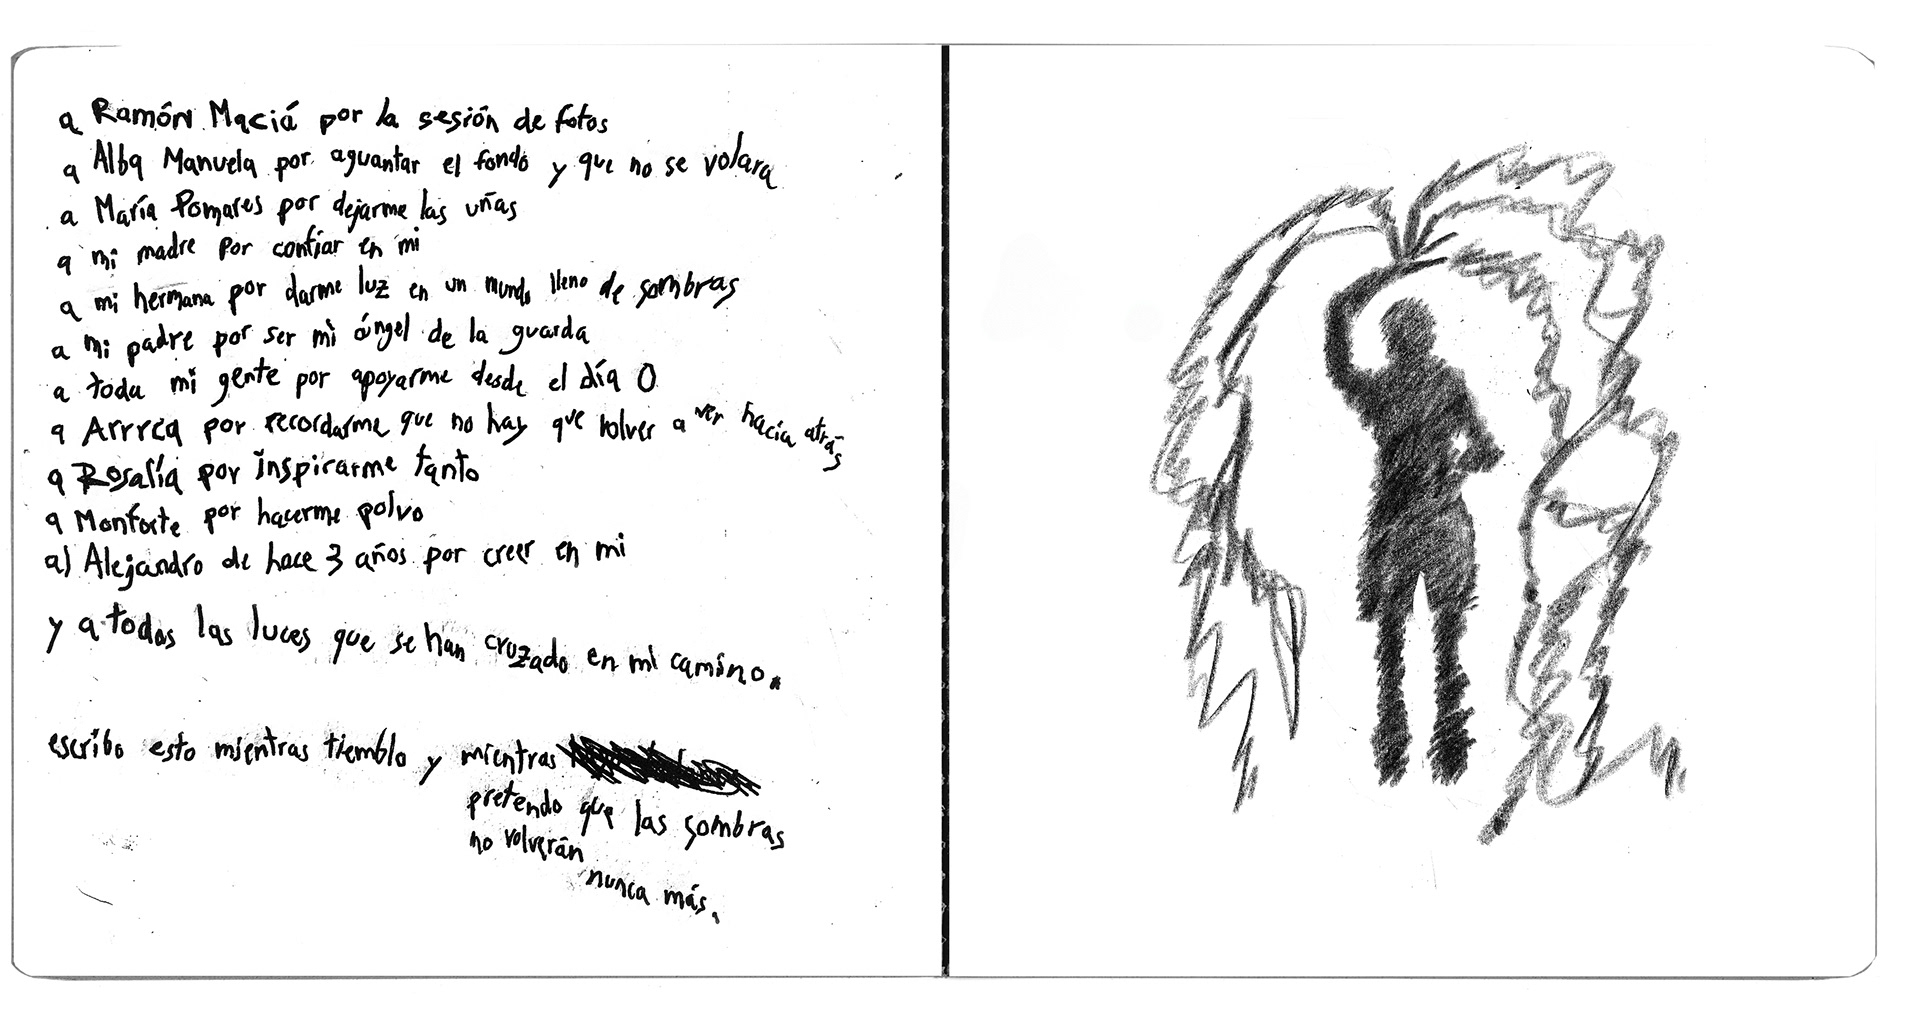 a Ramón Maciá por la sesión de fotos
a Alba Manuela por aguantar el fondo y que no se volara
a María Pomares por dejarme las uñas
a mi madre por confiar en mi
a mi hermana por darme luz en un mundo lleno de sombras
a mi padre por ser mi ángel de la guarda
a toda mi gente por apoyarme desde el día 0
a Arrrea por recordarme que no hay que volver a ver hacia atrás
a Rosalía por inspirarme tanto
a Monforte por hacerme polvo
al Alejandro de hace 3 años por creer en mi
y a todas las luces que se han cruzado en mi camino.
escribo esto mientras tiemblo y mientras
pretendo que las sombras
no volverán
nunca más.